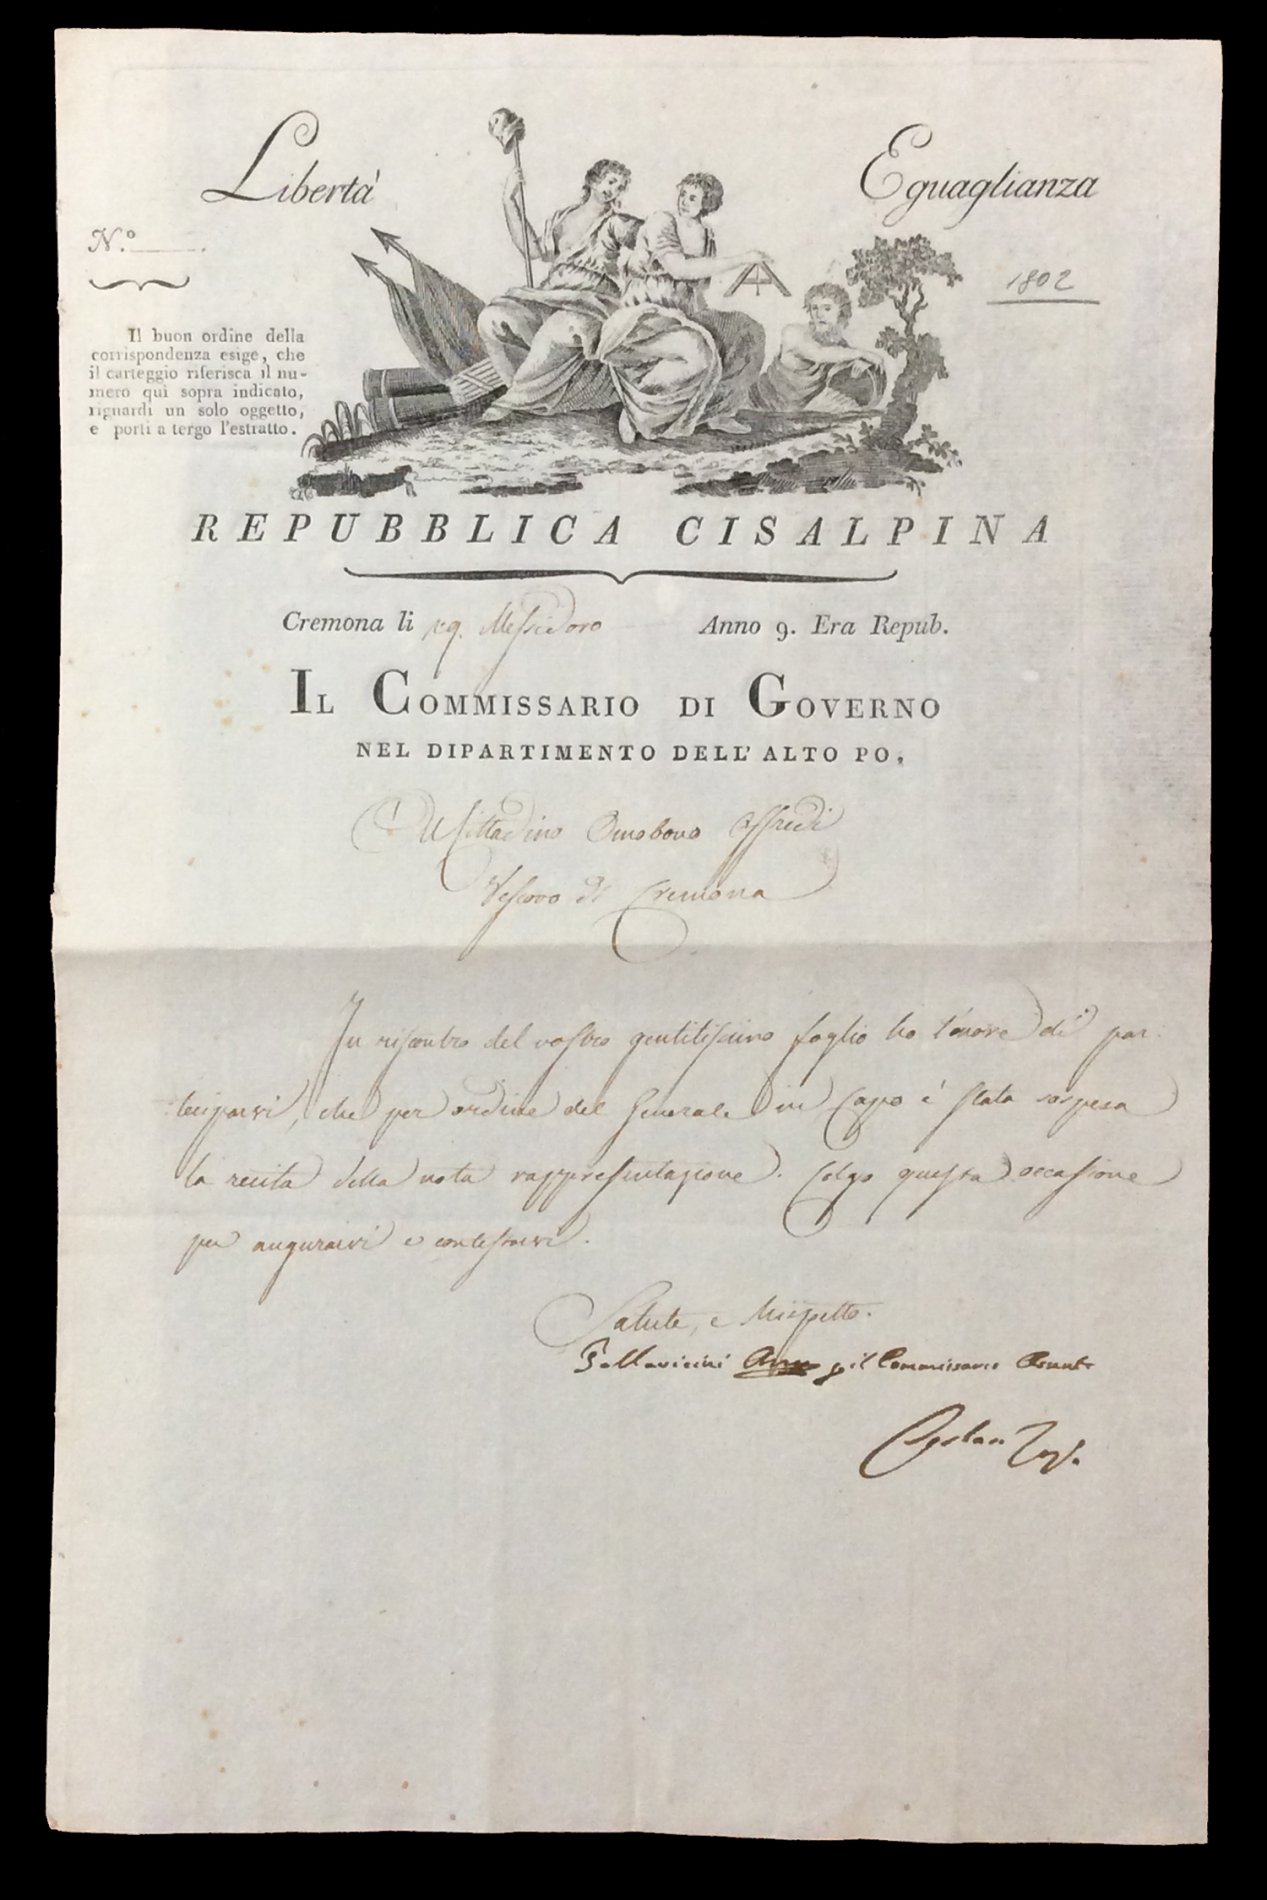 Libertà
Eguaglianza
N.º
1802
Il buon ordine della
corrispondenza esige, che
il carteggio riferisca il nu-
mero quì sopra indicato,
riguardi un solo oggetto,
e porti a tergo l'estratto.
REPUBBLICA CISALPINA
Cremona li Messidoro Anno 9. Era Repub.
IL COMMISSARIO DI GOVERNO
NEL DIPARTIMENTO DELL' ALTO PO,
Al Cittadino Omobono Offredi
Vescovo di Cremona
In riscontro del vostro gentilissimo foglio ho l'onore di par-
teciparvi, che per ordine del Generale in Capo è stata sospesa
la recita della nota rappresentazione. Colgo questa occassione
per augurarvi e contestarvi.
Salute, e Rispetto.
Pallavicini il Commissario